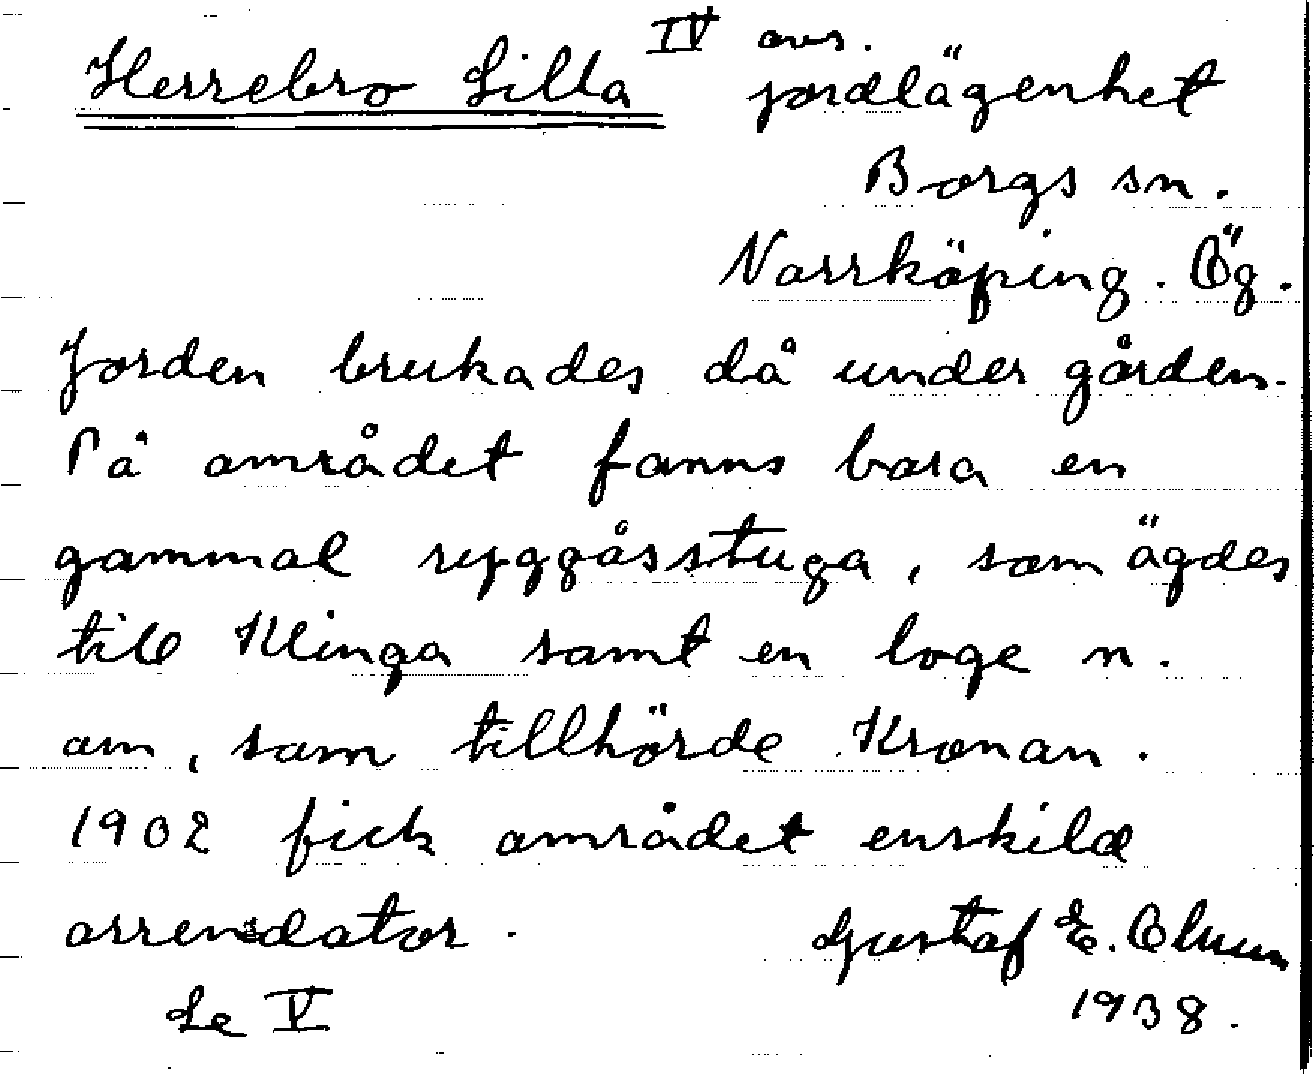 Herrebro Lilla IV avs.
jordlägenhet
Borgs sn.
Norrköping. Ög.
Jorden brukades då under gården.
På området fanns bara en
gammal ryggåsstuga, som ägdes
till Klinga samt en loge m.
am, som tillhörde Kronan.
1902 fick området enskild
arrendator.
Gustaf E. Olsson
Se V
1938.